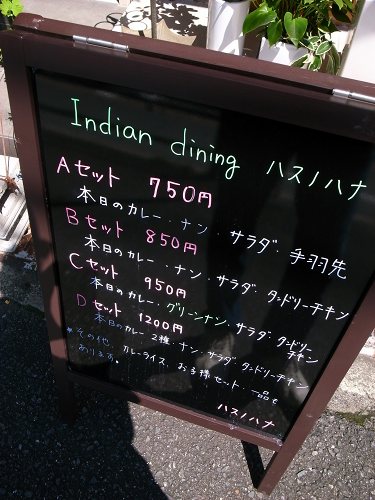 Indian dining ハスノハナ
Aセット 750円
本日のカレー・ナン・サラダ・手羽先
Bセット 850円
本日のカレー・ナン・サラダ・タンドリーチキン
Cセット 950円
本日のカレー・グリーンナン・サラダ・タンドリーチキン
Dセット 1200円
本日のカレー2種・ナン・サラダ・タンドリーチキン
*その他、カレーライス、お子様セット・一品も
あります。
ハスノハナ